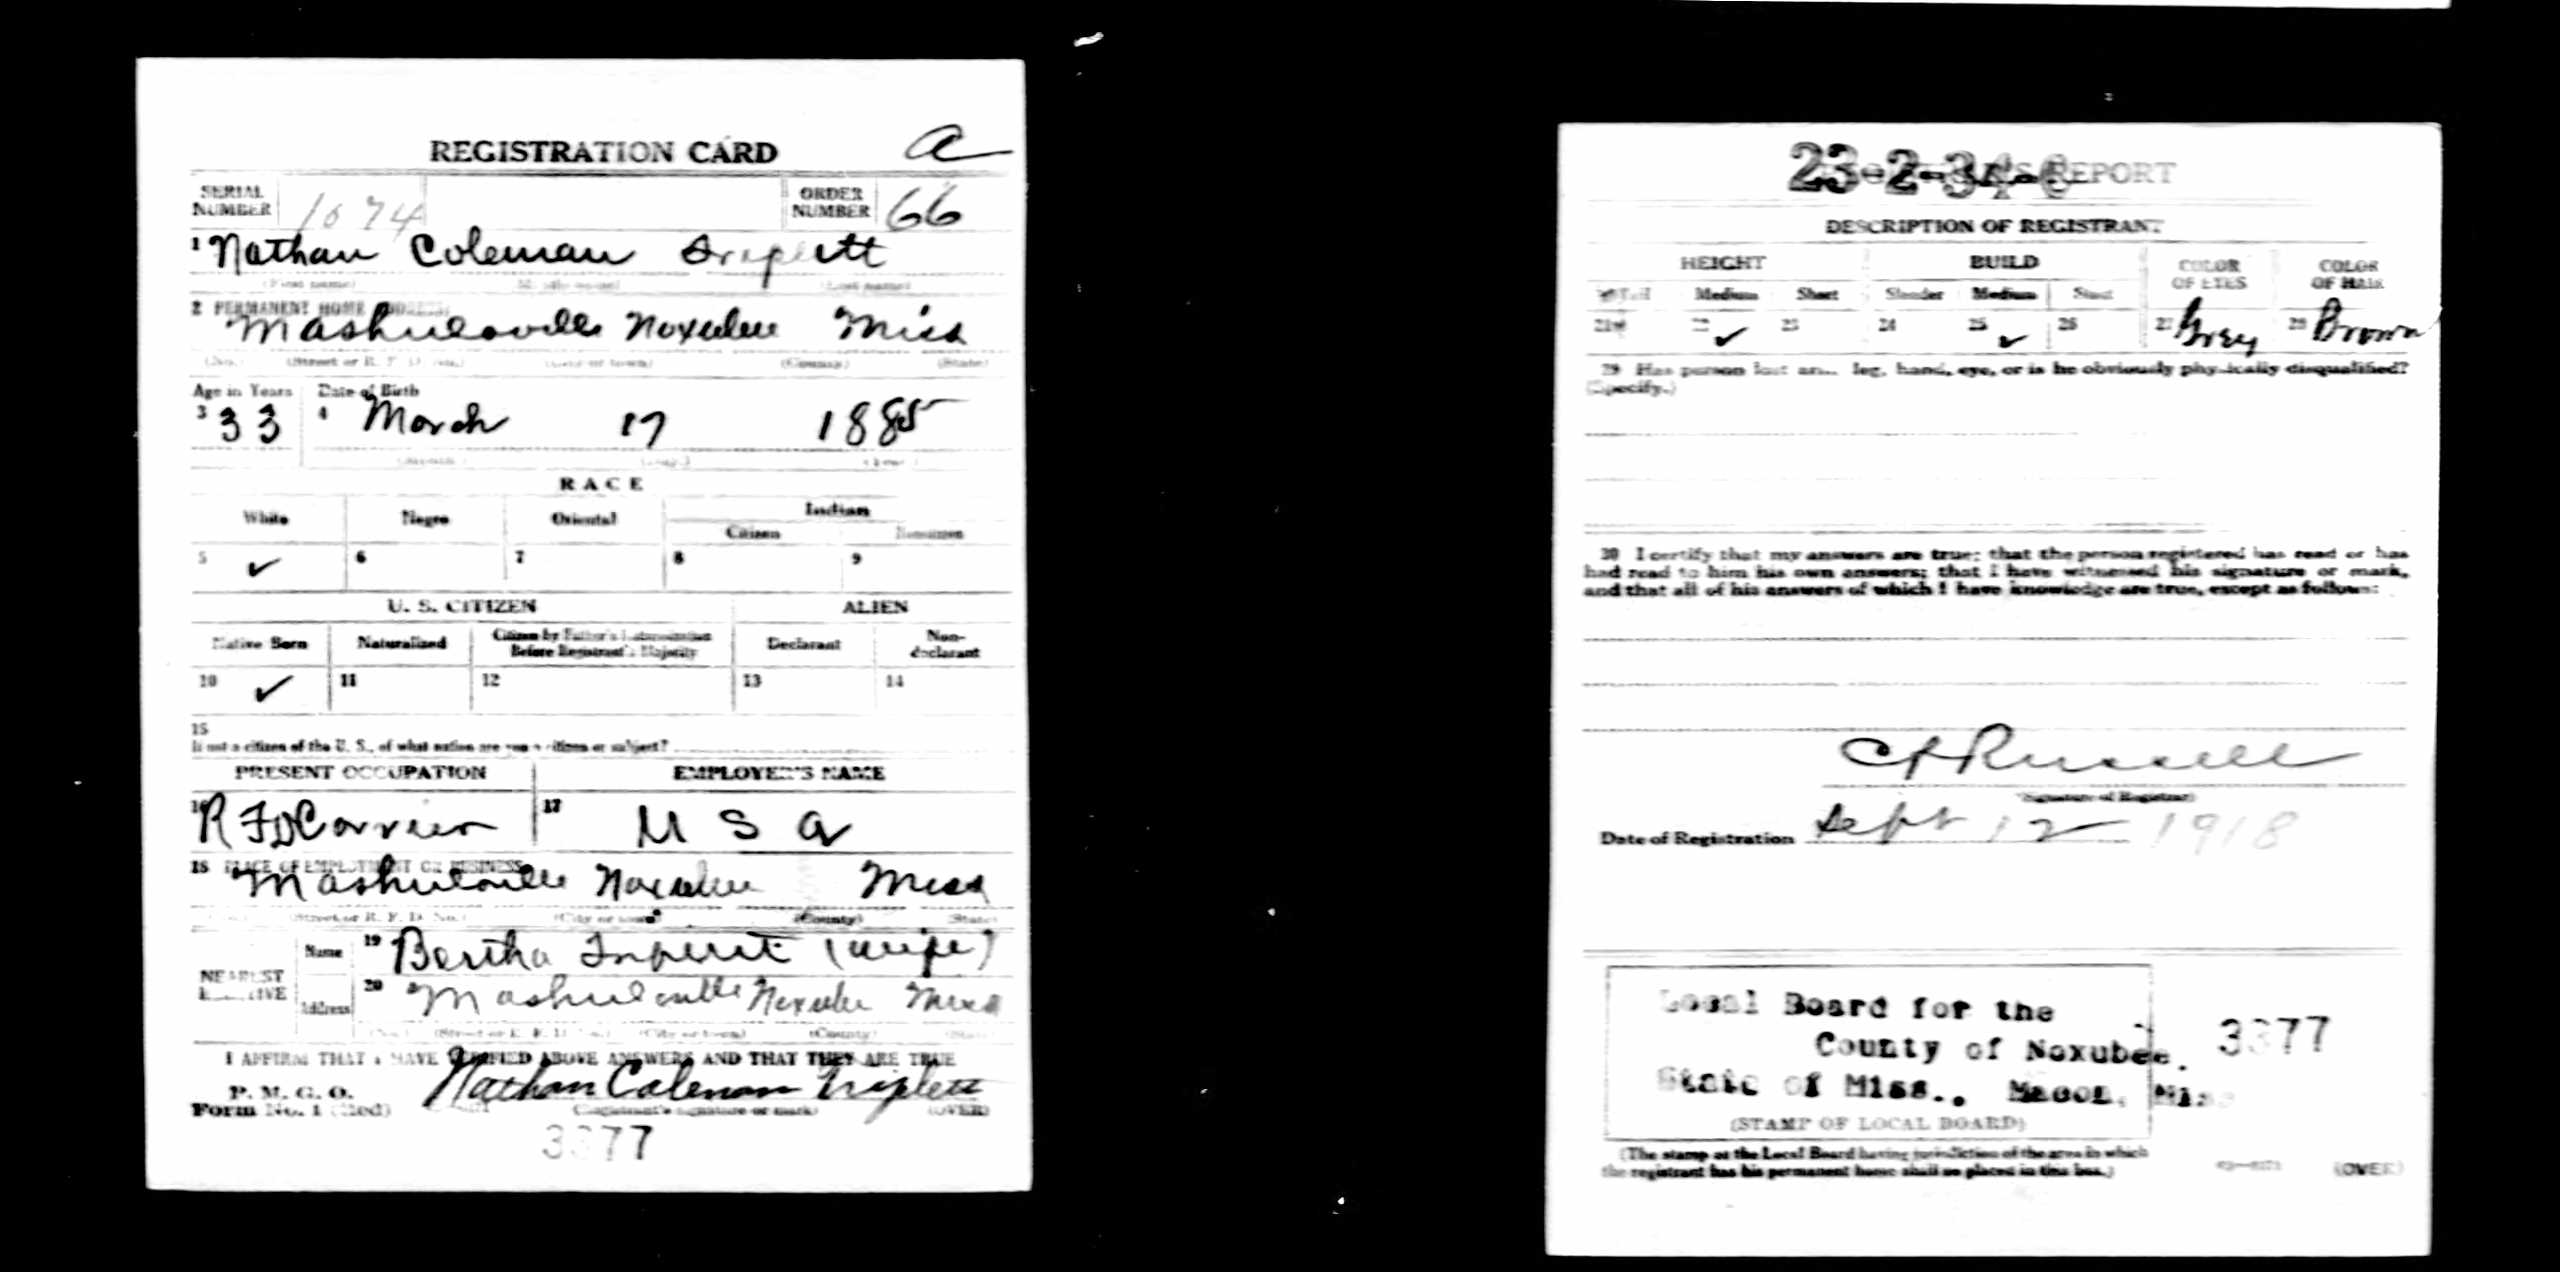 REGISTRATION CARD a
SERIAL NUMBER 1074 ORDER NUMBER 66
1 Nathan Coleman Triplett
(First name) (Middle name) (Last name)
2 PERMANENT HOME ADDRESS:
Mashulaville Noxubee Miss
(No.) (Street or R. F. D. No.) (City or town) (County) (State)
Age in Years Date of Birth
3 33 4 March 17 1885
(Month.) (Day.) (Year.)
RACE
White Negro Oriental Indian
Citizen Noncitizen
5 ✓ 6 7 8 9
U. S. CITIZEN ALIEN
Native Born Naturalized Citizen by Father's Naturalization Before Registrant's Majority Declarant Non-declarant
10 ✓ 11 12 13 14
15
If not a citizen of the U. S., of what nation are you a citizen or subject?
PRESENT OCCUPATION EMPLOYER'S NAME
16 R F D Carrier 17 U S a
18 PLACE OF EMPLOYMENT OR BUSINESS
Mashulaville Noxubee Miss
(Street or R. F. D. No.) (City or town) (County) (State)
NEAREST RELATIVE Name 19 Bertha Triplett (wife)
Address 20 Mashulaville Noxubee Miss
(No.) (Street or R. F. D. No.) (City or town) (County) (State)
I AFFIRM THAT I HAVE VERIFIED ABOVE ANSWERS AND THAT THEY ARE TRUE
P. M. G. O.
Form No. 1 (Red) Nathan Coleman Triplett
(Registrant's signature or mark) (OVER)
3377
23-2-34-C REPORT
DESCRIPTION OF REGISTRANT
HEIGHT BUILD COLOR OF EYES COLOR OF HAIR
Tall Medium Short Slender Medium Stout
21 22 ✓ 23 24 25 ✓ 26 27 Grey 28 Brown
29 Has person lost arm, leg, hand, eye, or is he obviously physically disqualified?
(Specify.)
30 I certify that my answers are true; that the person registered has read or has
had read to him his own answers; that I have witnessed his signature or mark,
and that all of his answers of which I have knowledge are true, except as follows:
Russell
(Signature of Registrar)
Date of Registration Sept 12 1918
Local Board for the
County of Noxubee. 3377
State of Miss., Macon, Miss
(STAMP OF LOCAL BOARD)
(The stamp of the Local Board having jurisdiction of the area in which
the registrant has his permanent home shall be placed in this box.)
(OVER)